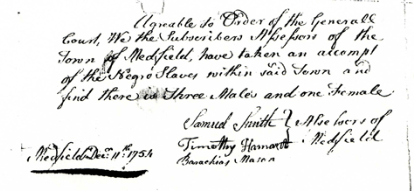 Agreable to Order of the Generall
Court, We the Subscribers Assessors of the
Town of Medfield, have taken an accompt
of the Negro Slaves within said Town and
find there is Three Males and one Female
Samuel Smith } Assessors of
Timothy Medfield
Barachias Mason
Medfield Decr. 11th. 1754